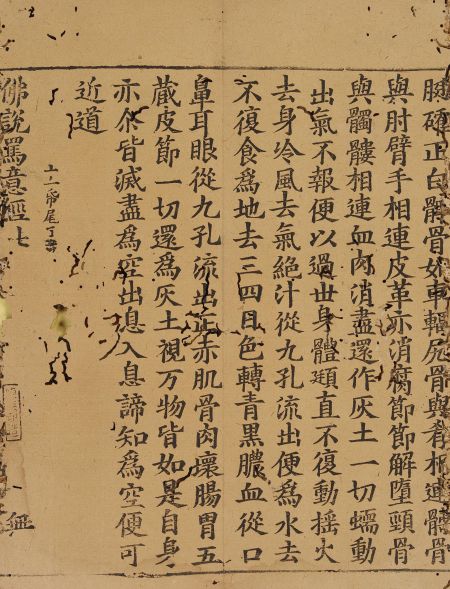 碩正白髖骨如車輻尻骨與脊相連髖骨
與肘臂手相連皮革亦消腐節節解墮頸骨
與髑髏相連血肉消盡還作灰土一切蠕動
出氣不報便以過世身體直不復動摇火
去身冷風去氣絶汁從九孔流出便爲水去
不復食爲地去三四日色轉青黑膿血從口
鼻耳眼從九孔流出正赤肌骨肉壞腸胃五
藏皮節一切還爲灰土視万物皆如是自身
亦尒皆滅盡爲空出息入息諦知爲空便可
近道
十二帋尾丁
佛說罵意經七